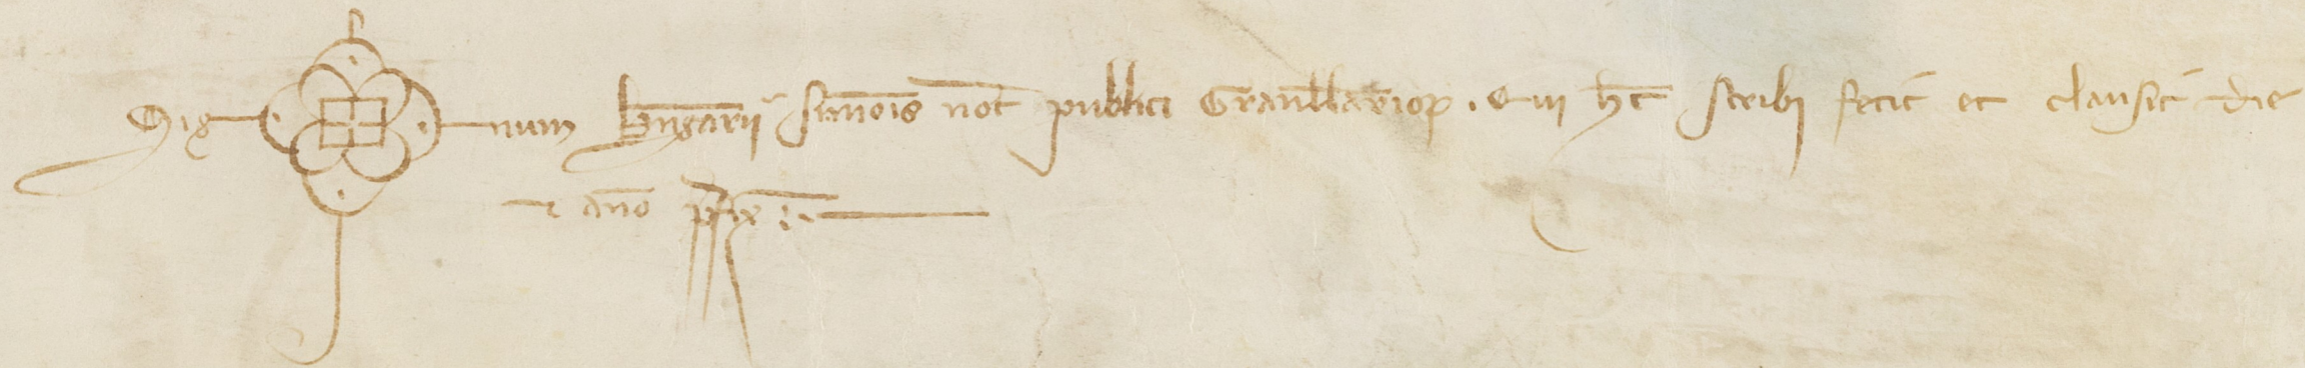 Sig num bngarii simois not publici Granllarioꝝ. Qui hc scribi fecit et clausit die
et ano pfix i.